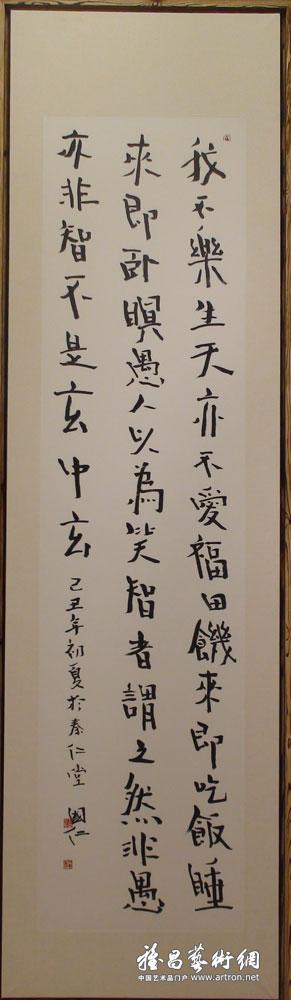 我不樂生天亦不愛福田饑來即吃飯睡
來即卧瞑愚人以為笑智者謂之然非愚
亦非智不是玄中玄
己丑年初夏於秦仁堂 國仁
雅昌藝術網
中国艺术品门户 www.artron.net